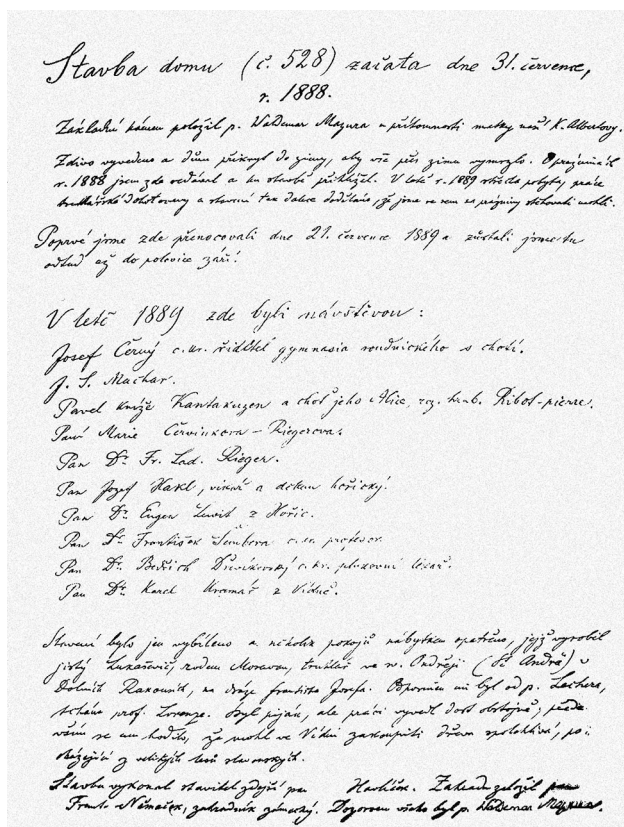 Stavba domu (č. 528) začata dne 31. července,
r. 1888.
Základní kámen položil p. Waldemar Mazura u přítomnosti matky naší K. Albertovy.
Zdivo vyvedeno a dům přikryt do zimy, aby vše přes zimu vymrzlo. O prázninách
r. 1888 jsem zde a ku stavbě přihlížel. V létě r. 1889 střecha pobyta, práce
truhlářské dohotoveny a stavení tak dalece doděláno, že jsme se sem na prázniny stěhovati mohli.
Poprvé jsme zde přenocovali dne 21. července 1889 a zůstali jsme tu
odtud až do polovice září.
V létě 1889 zde byli návštěvou:
Josef Černý c. kr. ředitel gymnasia roudnického s chotí.
J. S. Machar.
Pavel kníže Kantakuzen a choť jeho Alice, roz. hrab. Ribot-pierre.
Paní Marie Červinkova-Riegerova.
Pan Dr. Fr. Lad. Rieger.
Pan Jozef Hakl, vikář a děkan hořický.
Pan Dr. Eugen z Hořic.
Pan Dr. František Šembera c. kr. profesor
Pan Dr. Bedřich c. kr. plukovní lékař.
Pan Dr. Karel Kramář z Vídně.
Stavení bylo jen vybíleno a několik pokojů nábytkem opatřeno, jejž vyrobil
jistý Lukašovič, rodem Moravan, truhlář ve sv. Ondřeji (St. Andrä) v
Dolních Rakousích, na dráze Františka Josefa. Odporučen mi byl od p. Lachera,
tchána prof. Lorenze. Byl piján, ale práci vyvedl dost obstojně;
se mu hodilo, že mohl ve Vídni zakoupiti dřevo spolehlivé, po-
cházející z velikých lesů slovanských.
Stavbu vykonal stavitel zdejší pan Havlíček. Zahradu založil pan
Frant. Němeček, zahradník zámecký. Dozorcem všeho byl p. Waldemar Mazura.